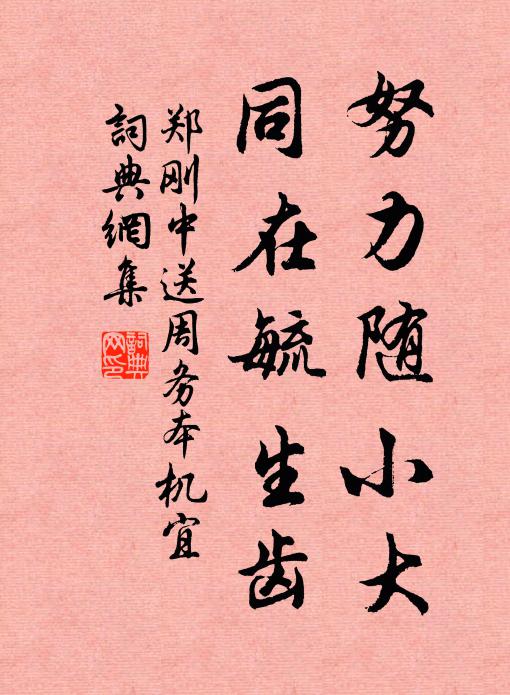 努力随小大
同在毓生齿
郑刚中送周务本机宜
詞典網集
詞典
网印